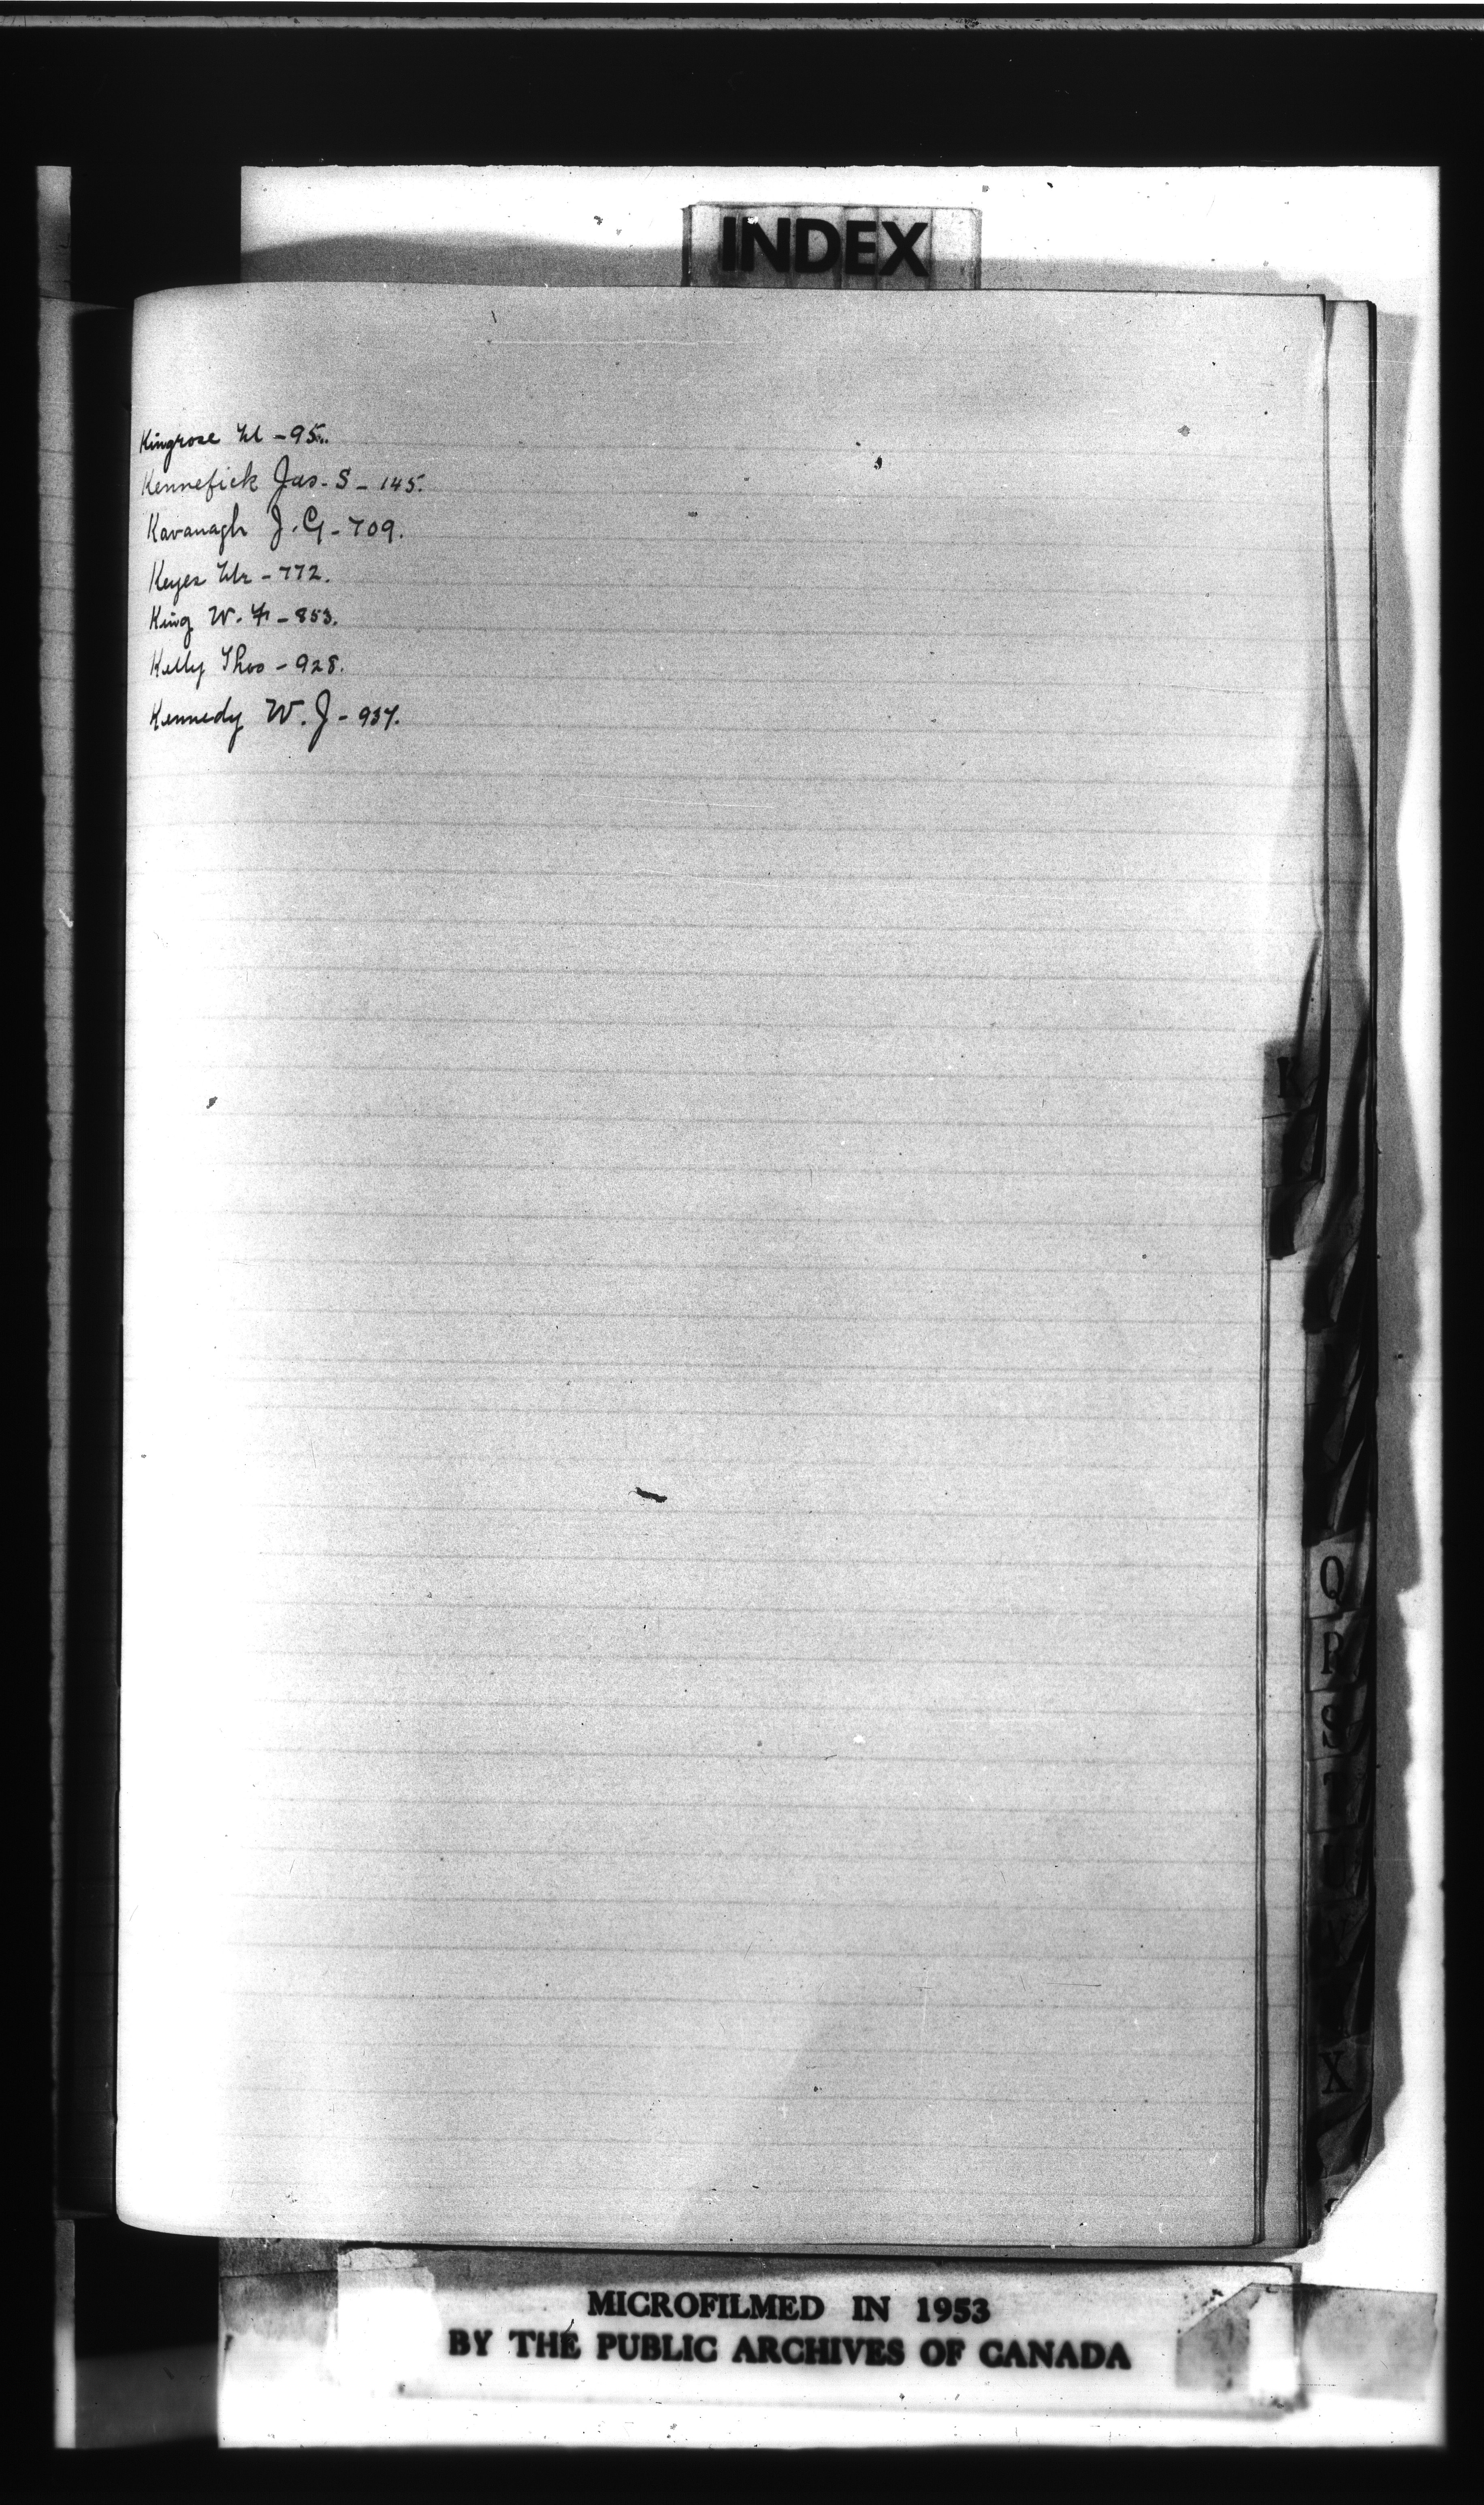 INDEX
Kingrose M - 95.
Kennefick Jas. S - 145.
Kavanagh J. G - 709.
Keyes Mr - 772.
King W. F - 853.
Kelly Thos - 928.
Kennedy W. J - 937.
K
Q
R
S
T
U
V
X
MICROFILMED IN 1953
BY THE PUBLIC ARCHIVES OF CANADA